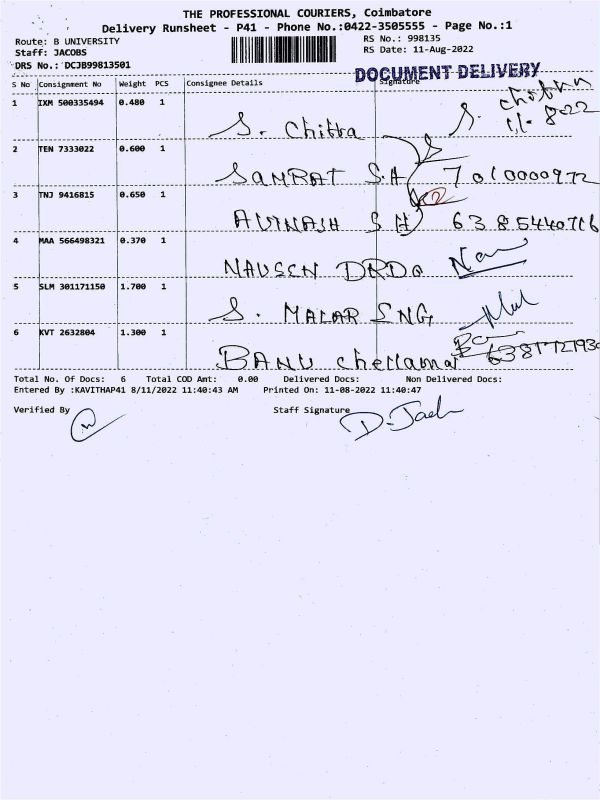 THE PROFESSIONAL COURIERS, Coimbatore
Delivery Runsheet - P41 - Phone No.:0422-3505555 - Page No.:1
Route: B UNIVERSITY
RS No.: 998135
Staff: JACOBS
RS Date: 11-Aug-2022
DRS No.: DCJB99813501
DOCUMENT DELIVERY
S No Consignment No Weight PCS Consignee Details Signature
1 IXM 500335494 0.480 1 S. Chitra S. 11-8-22
2 TEN 7333022 0.600 1 SAMRAT S.H 7010000972
3 TNJ 9416815 0.650 1 AVINASH S H 6385440716
4 MAA 566498321 0.370 1 NAVEEN DRDO
5 SLM 301171150 1.700 1 S. MALAR ENG,
6 KVT 2632804 1.300 1 BANU
Total No. Of Docs: 6 Total COD Amt: 0.00 Delivered Docs: Non Delivered Docs:
Entered By :KAVITHAP41 8/11/2022 11:40:43 AM Printed On: 11-08-2022 11:40:47
Verified By Staff Signature